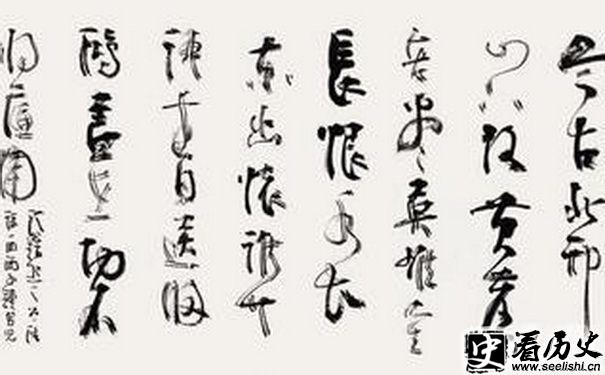 今古北邙
山下路黃塵
老盡英雄人生
長恨水長
東幽懷誰共
語遠目送歸
鴻蓋世功名
將底用
史 看历史
www.seelishi.cn